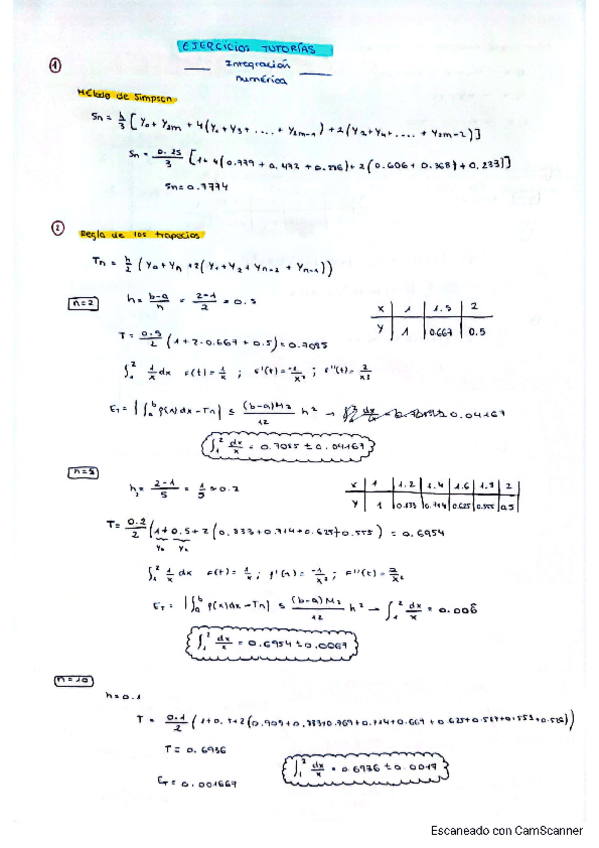 EJERCICIOS TUTORÍAS
① Integración
numérica
Método de Simpson
Sn = h/3 [y₀ + y₂m + 4(y₁ + y₃ + .... + y₂m-1) + 2(y₂ + y₄ + .... + y₂m-2)]
Sn = 0.25/3 [1 + 4(0.779 + 0.472 + 0.286) + 2(0.606 + 0.368) + 0.233)]
Sn = 0.7774
② Regla de los trapecios
Tn = h/2 (y₀ + yn + 2(y₁ + y₂ + yn-2 + yn-1))
n=2 h = b-a/n = 2-1/2 = 0.5
x 1 1.5 2
y 1 0.667 0.5
T = 0.5/2 (1 + 2·0.667 + 0.5) = 0.7085
∫₁² 1/x dx f(t) = 1/x ; f'(t) = -1/x² ; f''(t) = 2/x³
ET = |∫ₐᵇ f(x)dx - Tn| ≤ (b-a)M₂/12 h² → 0.04167
∫₁² dx/x = 0.7085 ± 0.04167
n=5
h = 2-1/5 = 1/5 = 0.2
x 1 1.2 1.4 1.6 1.8 2
y 1 0.833 0.714 0.625 0.555 0.5
T = 0.2/2 (1 + 0.5 + 2(0.833 + 0.714 + 0.625 + 0.555) = 0.6954
y₀ yn
∫₁² 1/x dx f(t) = 1/x ; f'(x) = -1/x² ; f''(t) = 2/x³
ET = |∫ₐᵇ f(x)dx - Tn| ≤ (b-a)M₂/12 h² → ∫₁² dx/x = 0.006
∫₁² dx/x = 0.6954 ± 0.0067
n=10
h = 0.1
T = 0.1/2 (1 + 0.5 + 2(0.909 + 0.833 + 0.769 + 0.714 + 0.667 + 0.625 + 0.587 + 0.553 + 0.526))
T = 0.6936
ET = 0.001667
∫₁² dx/x = 0.6936 ± 0.0017
Escaneado con CamScanner